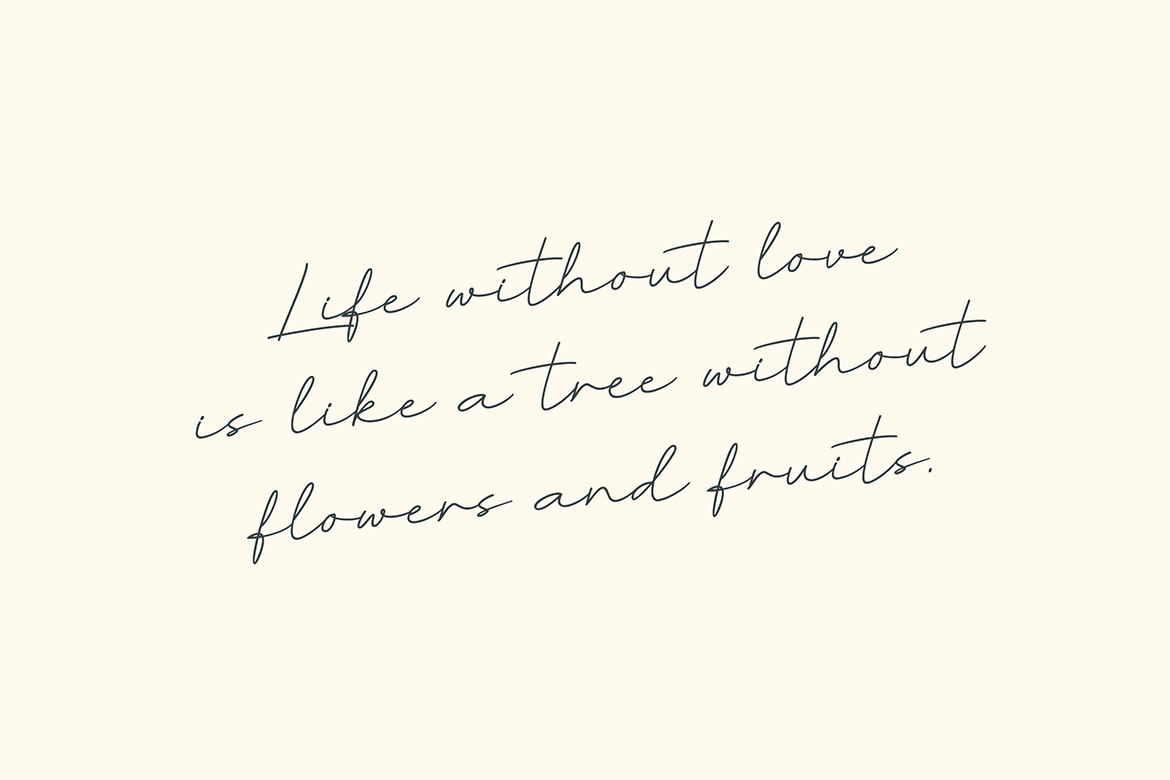 Life without love
is like a tree without
flowers and fruits.